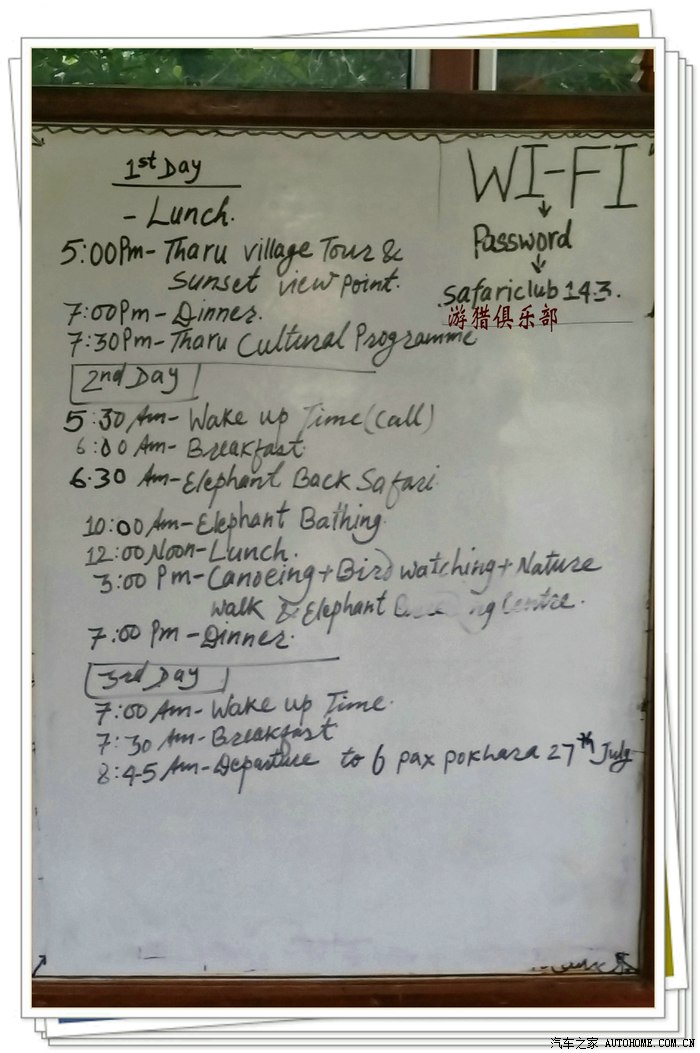 1st Day
- Lunch.
5:00 Pm - Tharu village Tour &
Sunset view point.
7:00 Pm - Dinner.
7:30 Pm - Tharu Cultural Programme
WI-FI
Password
safariclub143.
游猎俱乐部
2nd Day
5:30 Am - Wake up Time (call)
6:00 Am - Breakfast
6.30 Am - Elephant Back Safari
10:00 Am - Elephant Bathing
12:00 Noon - Lunch.
3:00 Pm - Canoeing + Bird watching + Nature
walk & Elephant Centre.
7:00 Pm - Dinner.
3rd Day
7:00 Am - Wake up Time.
7:30 Am - Breakfast
8:45 Am - Departure to 6 pax pokhara 27th July
汽车之家 AUTOHOME.COM.CN